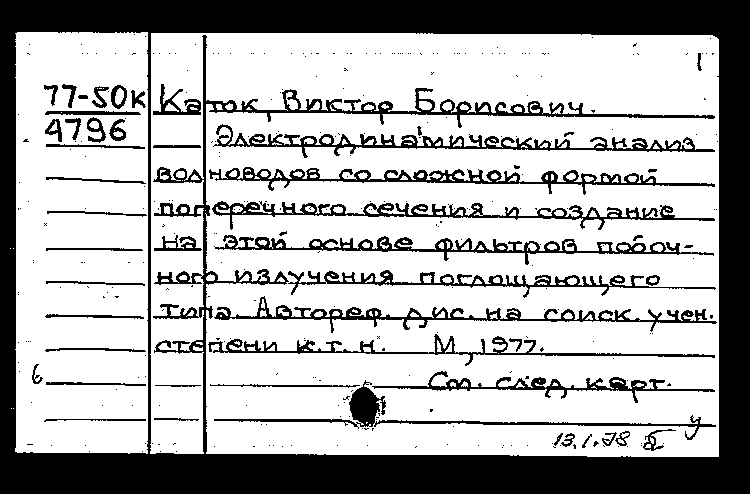 1
77-50к Каток, Виктор Борисович.
4796 Электродинамический анализ
волноводов со сложной формой
поперечного сечения и создание
на этой основе фильтров побоч-
ного излучения поглощающего
типа. Автореф. дис. на соиск. учен.
степени к.т.н. М, 1977.
6 См. след. карт.
у
13.1.78